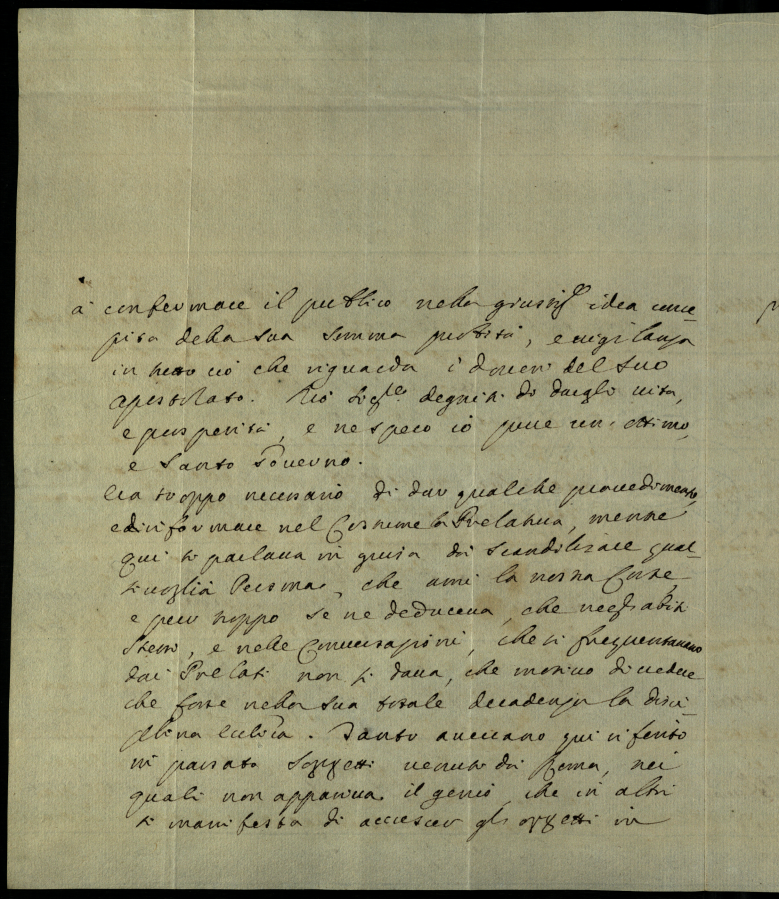 à confermare il publico nella giustissª idea conce-
pita della sua somma pietà, e vigilanza
in tutto ciò che riguarda i doveri del suo
Apostolato. Dio degnisi di dargli vita,
e prosperità, e ne spero io pure un ottimo,
e Santo Governo.
Era troppo necessario di dar qualche provedimento,
e di riformare nel Costume la Prelatura, mentre
qui si parlava in guisa da scandelizare qual-
sivoglia Persona, che ami la nostra Corte
e pur troppo se ne deduceva, che negl'abiti
stessi, e nelle Conversazioni, che si frequentavano
dai Prelati non si dava, che motivo di vedere
che fosse nella sua totale decadenza la disci-
plina eccl.ica. Tanto avevano qui riferito
in passato Soggetti venuti da Roma, nei
quali non appariva il genio, che in altri
si manifesta di accrescer gli oggetti in